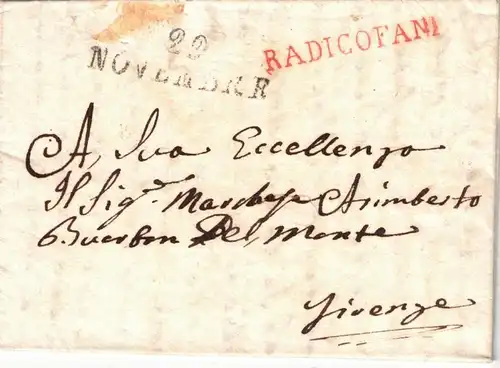 22
NOVEMBRE
RADICOFANI
A, Sua Eccellenza
Il Sig.e Marchese Arimberto
Bourbon Del, Monte
Firenze